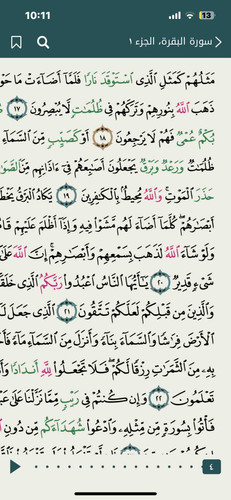 10:11
13
سورة البقرة، الجزء ١
مَثَلُهُمْ كَمَثَلِ ٱلَّذِى ٱسْتَوْقَدَ نَارًا فَلَمَّآ أَضَآءَتْ مَا حَوْ
ذَهَبَ ٱللَّهُ بِنُورِهِمْ وَتَرَكَهُمْ فِى ظُلُمَـٰتٍ لَّا يُبْصِرُونَ ١٧
بُكْمٌ عُمْىٌ فَهُمْ لَا يَرْجِعُونَ ١٨ أَوْ كَصَيِّبٍ مِّنَ ٱلسَّمَآءِ
ظُلُمَـٰتٌ وَرَعْدٌ وَبَرْقٌ يَجْعَلُونَ أَصَـٰبِعَهُمْ فِىٓ ءَاذَانِهِم مِّنَ ٱلصَّوَ
حَذَرَ ٱلْمَوْتِ وَٱللَّهُ مُحِيطٌۢ بِٱلْكَـٰفِرِينَ ١٩ يَكَادُ ٱلْبَرْقُ يَخْطَ
أَبْصَـٰرَهُمْ كُلَّمَآ أَضَآءَ لَهُم مَّشَوْا۟ فِيهِ وَإِذَآ أَظْلَمَ عَلَيْهِمْ قَامُ
وَلَوْ شَآءَ ٱللَّهُ لَذَهَبَ بِسَمْعِهِمْ وَأَبْصَـٰرِهِمْ إِنَّ ٱللَّهَ عَلَىٰ
شَىْءٍ قَدِيرٌ ٢٠ يَـٰٓأَيُّهَا ٱلنَّاسُ ٱعْبُدُوا۟ رَبَّكُمُ ٱلَّذِى خَلَقَ
وَٱلَّذِينَ مِن قَبْلِكُمْ لَعَلَّكُمْ تَتَّقُونَ ٢١ ٱلَّذِى جَعَلَ لَ
ٱلْأَرْضَ فِرَٰشًا وَٱلسَّمَآءَ بِنَآءً وَأَنزَلَ مِنَ ٱلسَّمَآءِ مَآءً فَأَخْ
بِهِۦ مِنَ ٱلثَّمَرَٰتِ رِزْقًا لَّكُمْ فَلَا تَجْعَلُوا۟ لِلَّهِ أَندَادًا وَأَ
تَعْلَمُونَ ٢٢ وَإِن كُنتُمْ فِى رَيْبٍ مِّمَّا نَزَّلْنَا عَلَىٰ عَبْ
فَأْتُوا۟ بِسُورَةٍ مِّن مِّثْلِهِۦ وَٱدْعُوا۟ شُهَدَآءَكُم مِّن دُونِ ٱ
٤